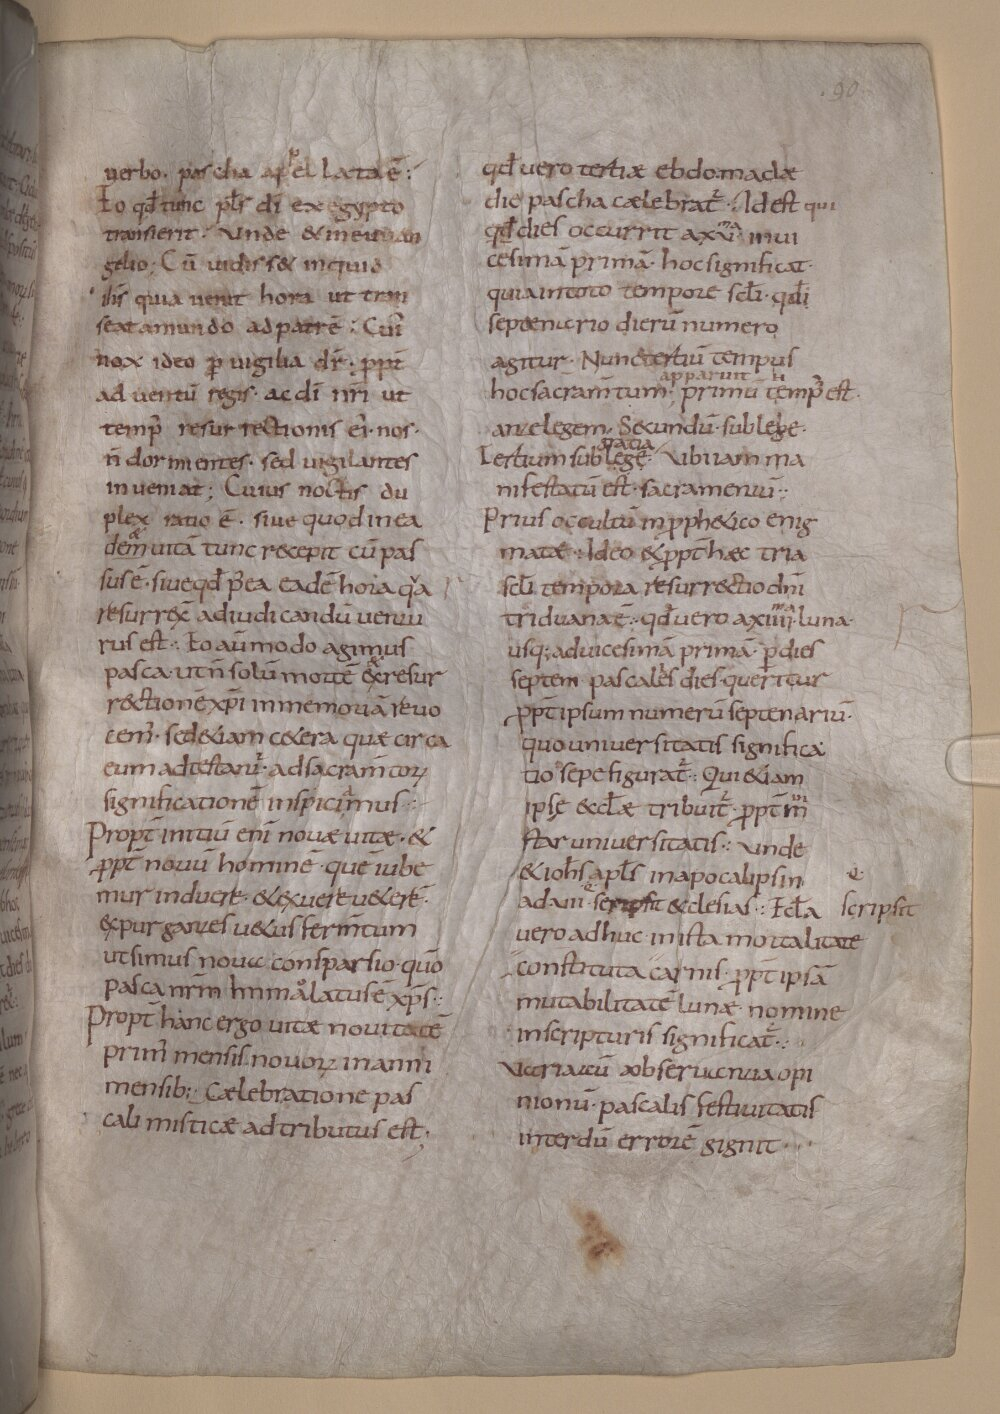 90
verbo. pascha apꝑellata ē:
Eo qđ tunc pl̄s dī ex egypto
transierit. Unde & in euuan
gelio; Cū uidisset inquid
ih̄s quia uenit hora ut tran
seat a mundo ad patrē: Cui'
nox ideo ꝑ uigilia dr̄: ꝓpt̄
aduentū regis. ac dī nr̄i ut
temp̄ resurrectionis ei'. nos.
n̄ dormientes. sed uigilantes
inueniat; Cuius noctis du
plex ratio ē. siue quod in ea
dem uitā tunc recepit cū pas
sus ē. siue qđ p̄ea eadē hora qa
resurrex̄ ad iudicandū uentu
rus est: Eo aū modo agimus
pasca. ut n̄ solū mortē & resur
rectionē xp̄i in memoriā reuo
cem'. sed etiam cetera quæ circa
eum adtestant̄. ad sacram̄torꝝ
significationē inspiciamus:
Propt̄ initiū eni nouæ uitæ. &
ꝓpt̄ nouū hominē. que iube
mur induere. & exuere ueterē.
expurgantes uetus ferm̄tum
ut simus noua consparsio. qm̄o
pasca nr̄m immolatus ē xp̄s:
Propt̄ hanc ergo uitæ nouitatē
prim' mensis nouorꝝ in anni
mensib; Cælebratione pas
cali misticæ adtributus est.
qđ uero tertiæ ebdomadæ
die pascha cælebrat̄. Id est qui
qđ dies occurrit a xiiii in ui
cesimā primā. hoc significat.
quia in toto tempore scl̄i. qđi
septenario dierū numero
agitur. Nunc tertiū tempus
apparuit
hoc sacram̄tum. primū temp̄ est.
ante legem. Secundū. sub lege.
gratia
Tertium sub lege. Ubi iam ma
nifestatū est. sacramentū:
Prius occultū in ꝓphetico enig
mate: Ideo & ꝓpt̄ hæc tria
scl̄i tempora resurrectio dn̄i
triduana ē: qđ uero a xiiii luna.
usq; ad uicesimā primā. ꝑ dies
septem pascales dies querit̄ur
ꝓpt̄ ipsum numerū septenariū.
quo uniuersitatis significa
tio sepe figurat̄: Qui etiam
ipse eccl̄æ tribuit̄. ꝓpt̄ in
star uniuersitatis: Unde
& ioh̄s apl̄s in apocalipsin
ad a uii scripsit ecclesias: Eccl̄a
scripsit
uero adhuc in ista mortalitate
constituta carnis. ꝓpt̄ ipsā
mutabilitatē lunæ nomine
in scripturis significat̄:
Uaria aut̄ obseruantia opi
nionū. pascalis festiuitatis
interdū errorē gignit